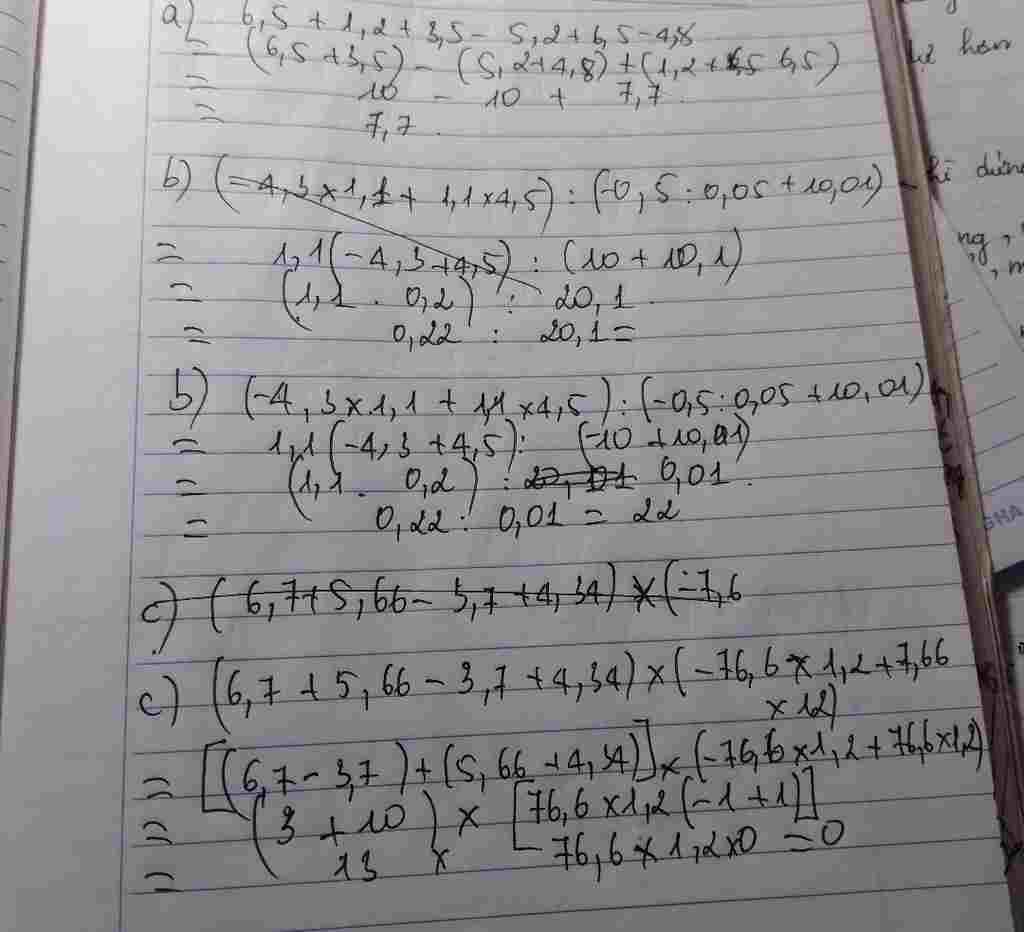 a) 6,5 + 1,2 + 3,5 - 5,2 + 6,5 - 4,8
= (6,5 + 3,5) - (5,2 + 4,8) + (1,2 + 6,5)
= 10 - 10 + 7,7
= 7,7.
b) (-4,3 × 1,1 + 1,1 × 4,5) : (-0,5 : 0,05 + 10,01)
= 1,1 (-4,3 + 4,5) : (10 + 10,1)
= (1,1 . 0,2) : 20,1.
= 0,22 : 20,1 =
b) (-4,3 × 1,1 + 1,1 × 4,5) : (-0,5 : 0,05 + 10,01)
= 1,1 (-4,3 + 4,5) : (-10 + 10,01)
= (1,1 . 0,2) : 0,01.
= 0,22 : 0,01 = 22
c) (6,7 + 5,66 - 3,7 + 4,34) × (-7,6
c) (6,7 + 5,66 - 3,7 + 4,34) × (-76,6 × 1,2 + 7,66
× 12)
= [(6,7 - 3,7) + (5,66 + 4,34)] × (-76,6 × 1,2 + 76,6 × 1,2)
= (3 + 10) × [76,6 × 1,2 (-1 + 1)]
= 13 × 76,6 × 1,2 × 0 = 0
hơn